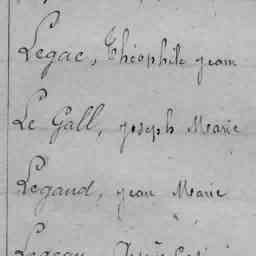 Legac, Théophile jean
Le Gall, joseph Marie
Legand, jean Marie